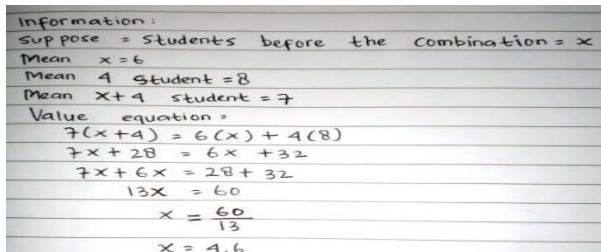 Information :
Suppose = Students before the combination = x
Mean x = 6
Mean 4 Student = 8
Mean x+4 student = 7
Value equation =
7(x+4) = 6(x) + 4(8)
7x + 28 = 6x + 32
7x + 6x = 28 + 32
13x = 60
x = 60/13
x = 4.6